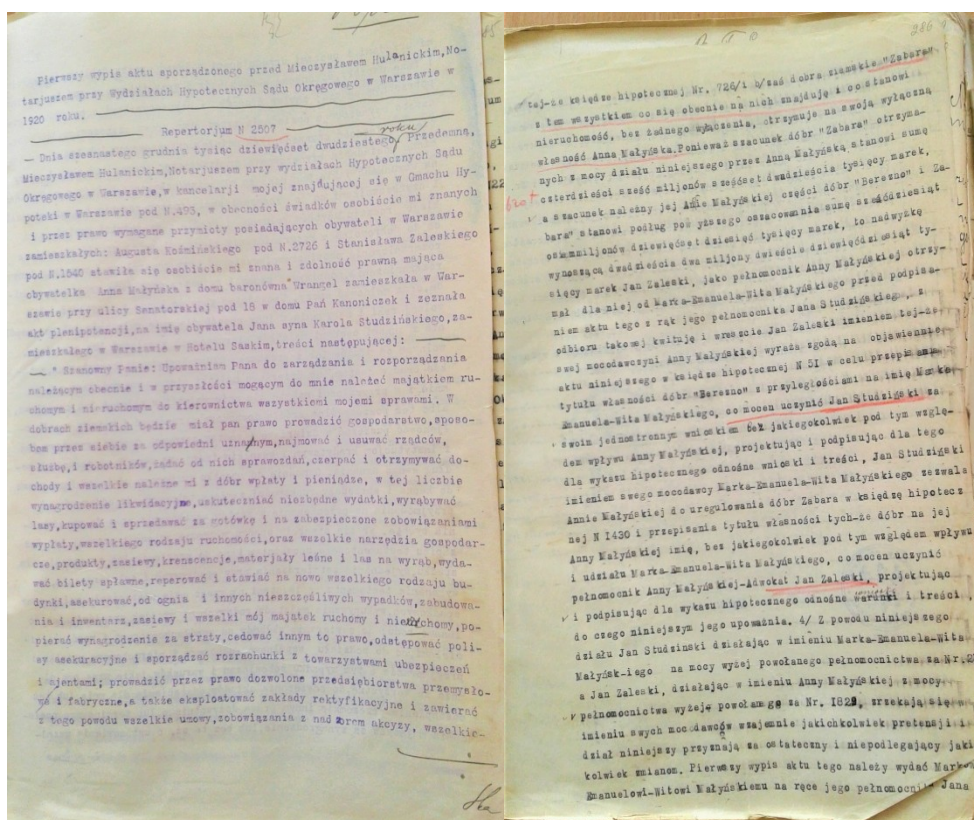 85
Pierwszy wypis aktu sporządzonego przed Mieczysławem Hulanickim, No-
tarjuszem przy Wydziałach Hypotecznych Sądu Okręgowego w Warszawie w
1920 roku.
Repertorjum N 2507
roku
- Dnia szesnastego grudnia tysiąc dziewięćset dwudziestego, Przedemną,
Mieczysławem Hulanickim, Notarjuszem przy wydziałach Hypotecznych Sądu
Okręgowego w Warszawie, w kancelarji mojej znajdującej się w Gmachu Hy-
poteki w Warszawie pod N.493, w obecności świadków osobiście mi znanych
i przez prawo wymagane przymioty posiadających obywateli w Warszawie
zamieszkałych: Augusta Koźmińskiego pod N.2726 i Stanisława Zaleskiego
pod N.1540 stawiła się osobiście mi znana i zdolność prawną mająca
obywatelka Anna Małyńska z domu baronówna Wrangel zamieszkała w War-
szawie przy ulicy Senatorskiej pod 16 w domu Pań Kanoniczek i zeznała
akt plenipotencji, na imię obywatela Jana syna Karola Studzińskiego, za-
mieszkałego w Warszawie w Hotelu Saskim, treści następującej:
" Szanowny Panie: Upoważniam Pana do zarządzania i rozporządzania
należącym obecnie i w przyszłości mogącym do mnie należeć majątkiem ru-
chomym i nieruchomym do kierownictwa wszystkiemi mojemi sprawami. W
dobrach ziemskich będzie miał pan prawo prowadzić gospodarstwo, sposo-
bem przez siebie za odpowiedni uznanym, najmować i usuwać rządców,
służbę, i robotników, żądać od nich sprawozdań, czerpać i otrzymywać do-
chody i wszelkie należne mi z dóbr wpłaty i pieniądze, w tej liczbie
wynagrodzenie likwidacyjne, uskuteczniać niezbędne wydatki, wyrąbywać
lasy, kupować i sprzedawać za gotówkę i na zabezpieczone zobowiązaniami
wypłaty, wszelkiego rodzaju ruchomości, oraz wszelkie narzędzia gospodar-
cze, produkty, zasiewy, krenscencje, materjały leśne i las na wyrąb, wyda-
wać bilety spławne, reperować i stawiać na nowo wszelkiego rodzaju bu-
dynki, asekurować, od ognia i innych nieszczęśliwych wypadków, zabudowa-
nia i inwentarz, zasiewy i wszelki mój majątek ruchomy i nieruchomy, po-
pierać wynagrodzenie za straty, cedować innym to prawo, odstępować poli-
sy asekuracyjne i sporządzać rozrachunki z towarzystwami ubezpieczeń
i ajentami; prowadzić przez prawo dozwolone przedsiębiorstwa przemysło-
we i fabryczne, a także eksploatować zakłady rektyfikacyjne i zawierać
z tego powodu wszelkie umowy, zobowiązania z nadzorem akcyzy, wszelkie-
286
tej-że księdze hipotecznej Nr. 726/1 b/ zaś dobra ziemskie "Zabara"
z tem wszystkiem co się obecnie na nich znajduje i co stanowi
nieruchomość, bez żadnego wyłączenia, otrzymuje na swoją wyłączną
własność Anna Małyńska. Ponieważ szacunek dóbr "Zabara" otrzyma-
nych z mocy działu niniejszego przez Annę Małyńską stanowi sumę
czterdzieści sześć miljonów sześćset dwadzieścia tysięcy marek,
620+
a szacunek należny jej Annie Małyńskiej części dóbr "Berezno" i Za-
bara" stanowi podług powyższego oszacowania sumę sześćdziesiąt
ośm miljonów dziewięćset dziesięć tysięcy marek, to nadwyżkę
wynoszącą dwadzieścia dwa miljony dwieście dziewięćdziesiąt ty-
sięcy marek Jan Zaleski, jako pełnomocnik Anny Małyńskiej otrzy-
mał dla niej od Marka-Emanuela-Wita Małyńskiego przed podpisa-
niem aktu tego z rąk jego pełnomocnika Jana Studzińskiego, z
odbioru takowej kwituje i wreszcie Jan Zaleski imieniem tej-że
swej mocodawczyni Anny Małyńskiej wyraża zgodę na objawienie
aktu niniejszego w księdze hipotecznej N 51 w celu przepisania
tytułu własności dóbr "Berezno" z przyległościami na imię Marka
Emanuela-Wita Małyńskiego, co mocen uczynić Jan Studziński za
swoim jednostronnym wnioskiem bez jakiegokolwiek pod tym wzglę-
dem wpływu Anny Małyńskiej, projektując i podpisując dla tego
dla wykazu hipotecznego odnośne wnioski i treści, Jan Studziński
imieniem swego mocodawcy Marka-Emanuela-Wita Małyńskiego zezwala
Annie Małyńskiej do uregulowania dóbr Zabara w księdze hipotecz
nej N 1430 i przepisania tytułu własności tych-że dóbr na jej
Anny Małyńskiej imię, bez jakiegokolwiek pod tym względem wpływu
i udziału Marka-Emanuela-Wita Małyńskiego, co mocen uczynić
pełnomocnik Anny Małyńskiej-Adwokat Jan Zaleski, projektując
i podpisując dla wykazu hipotecznego odnośne warunki i treści,
do czego niniejszym jego upoważnia. 4/ Z powodu niniejszego
działu Jan Studziński działając w imieniu Marka-Emanuela-Wita
Małyńsk-iego na mocy wyżej powołanego pełnomocnictwa za Nr.
a Jan Zaleski, działając w imieniu Anny Małyńskiej z mocy
pełnomocnictwa wyżej powołanego za Nr. 1829, zrzekają się w
imieniu swych mocodawców wzajemnie jakichkolwiek pretensji i
dział niniejszy przyznają za ostateczny i niepodlegający jakim
kolwiek zmianom. Pierwszy wypis aktu tego należy wydać Markowi
Emanuelowi-Witowi Małyńskiemu na ręce jego pełnomocnika Jana